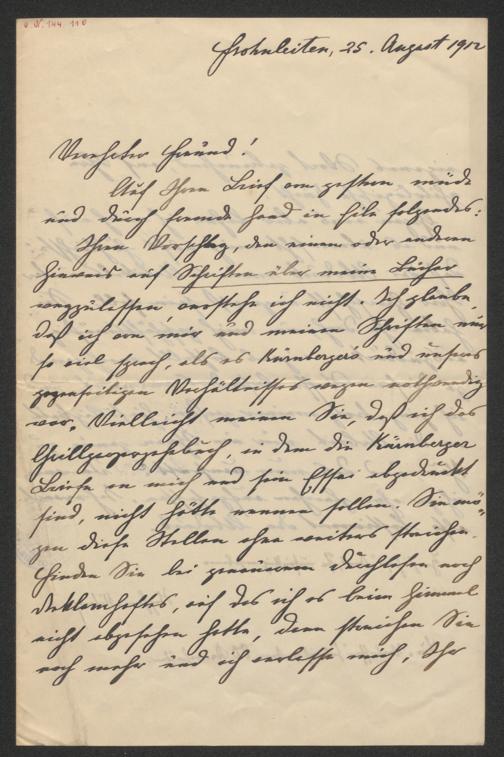 N. 144. 110
Frohnleiten, 25. August 1912
Verehrter Freund!
Auf Ihren Brief von gestern müde
und durch fremde Hand in Eile folgendes:
Ihren Vorschlag, den einen oder anderen
Hinweis auf Schriften über meine Bücher
wegzulassen, verstehe ich nicht. Ich glaube,
daß ich von mir und meinen Schriften nur
so viel sprach, als es Kürnbergers und unseres
gegenseitigen Verhältnisses wegen nothwendig
war. Vielleicht meinen Sie, daß ich das
Grillparzerjahrbuch, in dem die Kürnberger
Briefe an mich und sein Essai abgedruckt
sind, nicht hätte nennen sollen. Sie mö-
gen diese Stellen ohne weiters streichen.
Finden Sie bei genauerem Durchlesen noch
Reklamhaftes, auf das ich es beim Himmel
nicht abgesehen hatte, dann streichen Sie
noch mehr und ich verlasse mich, Ihr